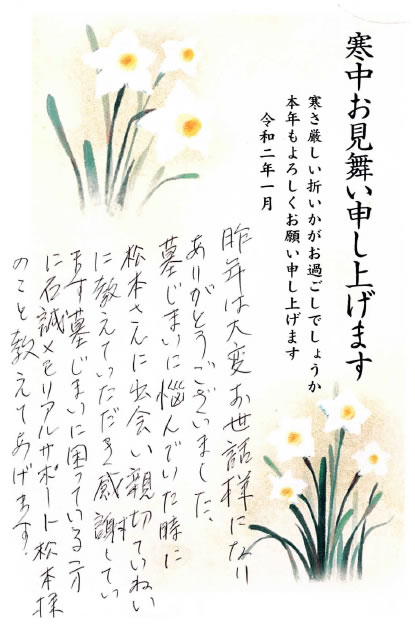 寒中お見舞い申し上げます
寒さ厳しい折いかがお過ごしでしょうか
本年もよろしくお願い申し上げます
令和二年一月
昨年は大変お世話様になり
ありがとうございました。
墓じまいに悩んでいた時に
松本さんに出会い親切ていねい
に教えていただき感謝してい
ます墓じまいに困っている方
に石誠メモリアルサポート松本様
のこと教えてあげます。